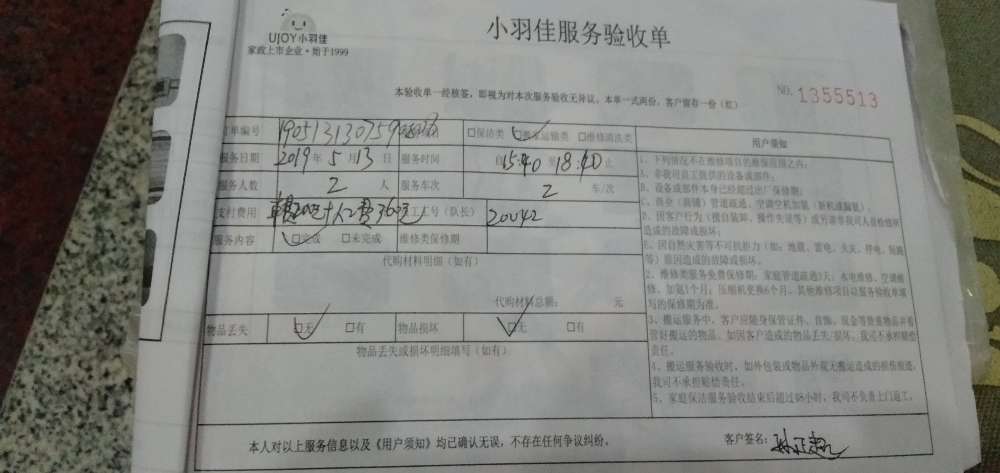 UJOY小羽佳
家政上市企业·始于1999
小羽佳服务验收单
本验收单一经核签，即视为对本次服务验收无异议。本单一式两份，客户留存一份（红）
NO. 1355513
订单编号 190513130759 □保洁类 □搬家运输类 □维修清洗类
服务日期 2019年5月13日 服务时间 自15:40至18:40止
服务人数 2人 服务车次 2车/次
支付费用 员工工号（队长） 20042
服务内容 □完成 □未完成 维修类保修期
代购材料明细（如有）
代购材料总额： 元
物品丢失 □无 □有 物品损坏 □无 □有
物品丢失或损坏明细填写（如有）
用户须知
1、下列情况不在维修项目的维保范围之内：
A、非我司员工提供的设备或部件；
B、设备或部件本身已经超过出厂保修期；
D、因客户行为（擅自装卸、操作失误等）或污渍等我司人员检修所
造成的故障或损坏；
E、因自然灾害等不可抗拒力（如：地震、雷电、火灾、停电、短路
等）原因造成的故障或损坏。
2、维修类服务免费保修期：家庭管道疏通3天；水电维修、空调维
修、加氟1个月；压缩机更换6个月。其他维修项目以服务验收单填
写的保修期为准。
3、搬运服务中，客户应随身保管证件、首饰、现金等贵重物品并看
管好搬运的物品。如因客户造成的物品丢失/损坏，我司不承担赔偿
责任。
4、搬运服务验收时，如外包装或物品外观无搬运造成的损伤痕迹，
我司不承担赔偿责任。
5、家庭保洁服务验收结束后超过48小时，我司不负责上门返工。
本人对以上服务信息以及《用户须知》均已确认无误，不存在任何争议纠纷。
客户签名：